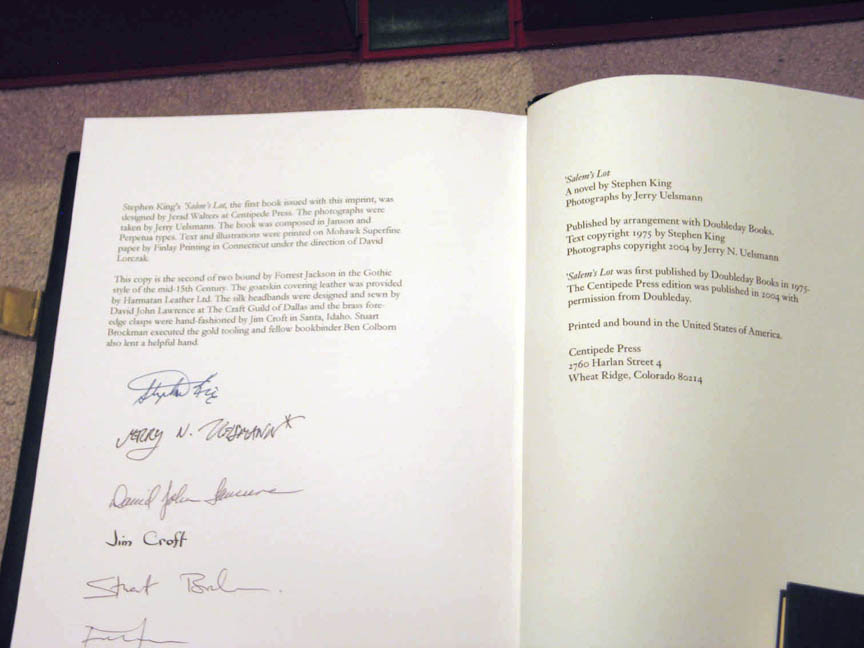 Stephen King's 'Salem's Lot, the first book issued with this imprint, was
designed by Jerad Walters at Centipede Press. The photographs were
taken by Jerry Uelsmann. The book was composed in Janson and
Perpetua types. Text and illustrations were printed on Mohawk Superfine
paper by Finlay Printing in Connecticut under the direction of David
Lorczak.
This copy is the second of two bound by Forrest Jackson in the Gothic
style of the mid-15th Century. The goatskin covering leather was provided
by Harmatan Leather Ltd. The silk headbands were designed and sewn by
David John Lawrence at The Craft Guild of Dallas and the brass fore-
edge clasps were hand-fashioned by Jim Croft in Santa, Idaho. Stuart
Brockman executed the gold tooling and fellow bookbinder Ben Colborn
also lent a helpful hand.
Stephen King
JERRY N. UELSMANN*
David John Lawrence
Jim Croft
Stuart
'Salem's Lot
A novel by Stephen King
Photographs by Jerry Uelsmann
Published by arrangement with Doubleday Books.
Text copyright 1975 by Stephen King
Photographs copyright 2004 by Jerry N. Uelsmann
'Salem's Lot was first published by Doubleday Books in 1975.
The Centipede Press edition was published in 2004 with
permission from Doubleday.
Printed and bound in the United States of America.
Centipede Press
2760 Harlan Street 4
Wheat Ridge, Colorado 80214